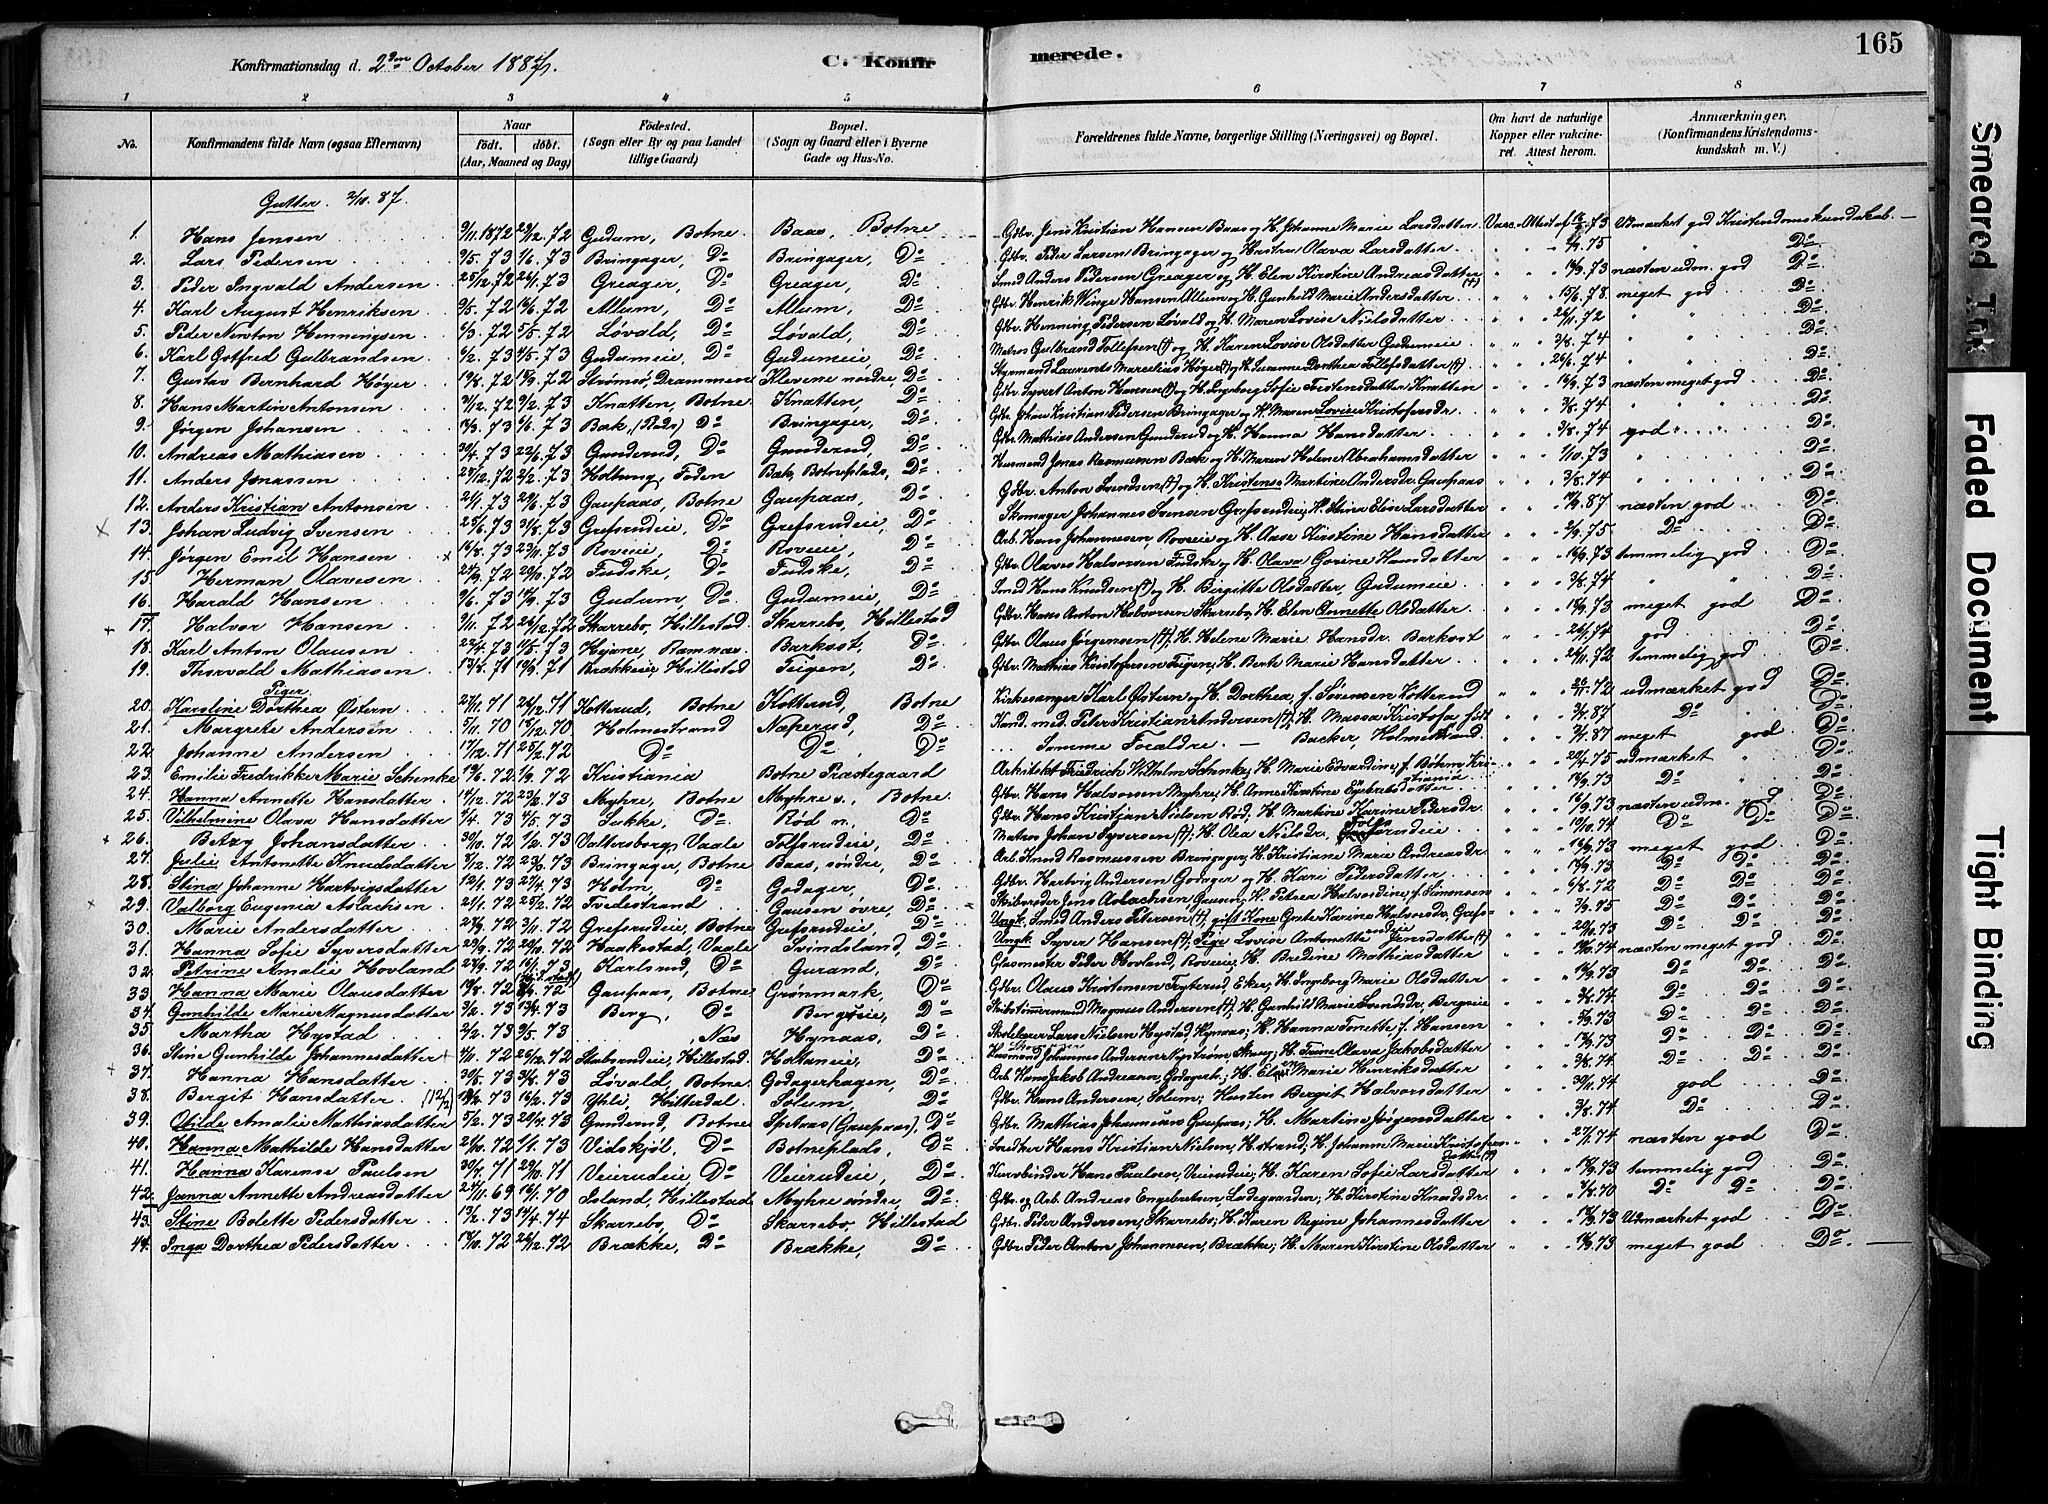 Konfirmationsdag d. 2den October 1887.
C. Konfirmerede.
165
1 2 3 4 5 6 7 8
No. Konfirmandens fulde Navn (ogsaa Efternavn) Naar Födt. döbt. (Aar, Maaned og Dag) Födested. (Sogn eller By og paa Landet tillige Gaard) Bopæl. (Sogn og Gaard eller i Byerne Gade og Hus-No. Forældrenes fulde Navne, borgerlige Stilling (Næringsvei) og Bopæl. Om havt de naturlige Kopper eller vakcineret. Attest herom. Anmærkninger. (Konfirmandens Kristendomskundskab m. V.)
Gutter. 2/10. 87.
1. Hans Jensen 9/11. 1872 29/12. 72 Gudum, Botne Baas, Botne Gdbr. Jens Kristian Hansen Baas og H. Johanne Marie Larsdatter Vacc. Attest af 73 Udmærket god Kristendomskundskab.
2. Lars Pedersen 9/5. 73 1/6. 73 Bringager, Do Bringager, Do Gdbr. Peder Larsen Bringager og Hustru Olava Larsdatter 75 " " Do
3. Peder Ingvald Andersen 25/12. 72 26/1. 73 Greager, Do Greager, Do Smed Anders Pedersen Greager og H. Elen Kirstine Andreasdatter 73 næsten udm. god Do
4. Karl August Henriksen 9/5. 72 16/6. 72 Allum, Do Allum, Do Gdbr. Henrik Winge Hansen Allum og H. Gunhild Marie Andersdatter (†) 15/6. 78. meget god Do
5. Peder Newton Henningsen 6/3. 72 5/5. 72 Løvald, Do Løvald, Do Gdbr. Henning Pedersen Løvald og H. Maren Lovise Nielsdatter 26/11. 72 " " Do
6. Karl Gotfred Gulbrandsen 6/2. 73 4/5. 73 Gudumeie, Do Gudumeie, Do Matros Gulbrand Tollefsen (†) og H. Karen Lovise Olsdatter Gudumeie 2/8. 74 " " Do
7. Gustav Bernhard Høyer 19/8. 72 15/9. 72 Strømsö, Drammen Klevene nordre, Do Styrmand Laurents Marcelius Høyer (†) og H. Susanne Dorthea Tollefsdatter (†) 26/1. 74 " " Do
8. Hans Martin Antonsen 31/12. 72 9/2. 73 Knatten, Botne Knatten, Do Gdbr. Syvert Anton Hansen (†) og H. Ingborg Sofie Tostensdatter Knatten 16/9. 73 næsten meget god Do
9. Jørgen Johansen 16/3. 73 1/6. 73 Bæk, Do Bringager, Do Gdbr. Johan Kristian Pedersen Bringager og H. Maren Lovise Kristofersdr. 3/8. 74 " " Do
10. Andreas Mathiasen 30/4. 73 22/6. 73 Gunderud, Do Gunderud, Do Gdbr. Mathias Andersen Gunderud og H. Hanna Hansdatter 3/8. 74 god " Do
11. Anders Jonassen 28/12. 72 2/2. 73 Holtung, Foden Bæk, Botneplads, Do Husmand Jonas Rasmussen Bæk og H. Maren Helene Abrahamsdatter 1/10. 73 " Do
12. Anders Kristian Antonsen 21/1. 73 29/6. 73 Gaupaas, Botne Gaupaas, Do Gdbr. Anton Svendsen (†) og H. Kristense Martine Andersdr. Gaupaas 3/8. 74 Do
13. Johan Ludvig Svensen 25/6. 73 31/8. 73 Grefsrudeie, Do Grefsrudeie, Do Skomager Johannes Svensen Grefsrudeie, H. Stina Elise Larsdatter 87 næsten god Do
14. Jørgen Emil Hansen 16/8. 73 23/11. 73 Roveeie, Do Roveie, Do Arb. Hans Johannesen, Roveeie og H. Aase Kirstine Hansdatter 2/9. 75 Do Do
15. Herman Olavesen 24/9. 72 20/10. 72 Fudske, Do Fudske, Do Gdbr. Olaves Halvorsen Fudske og H. Olava Govine Hansdatter 16/9. 73 temmelig god Do
16. Harald Hansen 9/6. 73 14/9. 73 Gudum, Do Gudumeie, Do Smed Hans Knudsen (†) og H. Birgitte Olsdatter, Gudumeie 3/8. 74 " " Do
17. Halvor Hansen 9/11. 72 26/12. 72 Skarrebo, Hillestad Skarrebo, Hillestad Gdbr. Hans Anton Halvorsen Skarrebo, H. Elen Annette Olsdatter 73 meget god Do
18. Karl Anton Olausen 23/4. 73 1/5. 73 Hejane, Ramnæs Barkost, Do Gdbr. Olaus Jørgensen (†), H. Helene Marie Hansdr. Barkost 26/1. 74 god Do
19. Thorvald Mathiasen 13/8. 71 10/9. 71 Brækkeie, Hillestad Teigen, Do Gdbr. Mathias Kristofersen Teigen, H. Berte Marie Hansdatter 26/11. 72 temmelig god Do
Piger
20. Karoline Dorthea Østern 27/11. 71 26/12. 71 Kotterud, Botne Kotterud, Botne Kirkesanger Karl Østern og H. Dorthea f. Sørensen Kotterud 72 udmærket god Do
21. Margrete Andersen 5/11. 70 18/12. 70 Holmestrand Næperud, Do Kand. med. Peter Kristian Andersen (†), H. Massa Kristofa født 87 Do Do
22. Johanne Andersen 17/12. 71 25/2. 72 Do Do Do Samme Forældre — Backer, Holmestrand 87 meget god Do
23. Emilie Fredrikke Marie Schenke 19/6. 72 1/9. 72 Kristiania Botne Præstegaard Arkitekt Friedrich Wilhelm Schenke, H. Marie Edvardine f. Bøhm Kristiania 20/4. 75 udmærket " Do
24. Hanna Annette Hansdatter 14/12. 72 23/2. 73 Myhre, Botne Myhre s., Botne Gdbr. Hans Halvorsen Myhre, H. Anne Kirstine Engebretsdatter 16/9. 73 Do Do
25. Vilhelmine Olava Hansdatter 1/4. 73 4/5. 73 Sukke, Do Rød n., Do Gdbr. Hans Kristian Nielsen Rød, H. Martine Karine Pedersdr. 73 næsten udm. god Do
26. Betzy Johansdatter 30/10. 72 1/2. 73 Valtersborg, Vaale Tolfsrudeie, Do Matros Johan Syversen (†), H. Olea Nilsdr. Tolfsrudeie 19/10. 74 Do Do Do
27. Julie Antonette Knudsdatter 3/12. 72 23/3. 73 Bringager, Botne Baas, søndre, Do Arb. Knud Rasmussen Bringager, H. Kristiane Marie Andreasdr 16/9. 73 meget god Do
28. Stina Johanne Hartvigsdatter 12/1. 73 27/4. 73 Holm, Do Godager, Do Gdbr. Hartvig Andersen Godager og H. Kari Pedersdatter 73 Do Do Do
29. Valborg Eugenia Aslachsen 21/1. 72 25/2. 72 Tvedestrand Gausen øvre, Do Skibsreder Jens Aslachsen Gausen, H. Petrea Halvordine f. Simonsen 72 Do Do Do
30. Marie Andersdatter 27/9. 72 3/11. 72 Grefsrudeie, Botne Grefsrudeie, Do Ungk. Smed Anders Petersen (†), gift Kone Grete Karine Halvorsdr. Grefsrudeie 75 Do Do Do
31. Hanna Sofie Syversdatter 29/9. 72 20/10. 72 Haakestad, Vaale Svindsland, Do Ungk. Syver Hansen (†), Pige Lovise Antonette Jensdatter (†) 73 Do Do Do
32. Petrine Amalie Hovland 27/9. 72 16/1. 73 Karlsrud, Do Gurand, Do Glasmester Peder Hovland, Roveeie, H. Bredine Mathiasdatter 74 næsten meget god Do
33. Hanna Marie Olausdatter 19/8. 72 72 Gaupaas, Botne Grønmark, Do Gdbr. Olaus Kristensen Fryterud, Eker, H. Ingeborg Marie Olsdatter 73 Do Do Do
34. Gunhilde Marie Magnusdatter 3/2. 73 13/4. 73 Berg, Do Bergseie, Do Skibstømmermand Magnus Andersen (†), H. Gunhild Marie Svendsdr, Bergseie 74 Do Do Do
35. Martha Hystad 2/2. 73 9/5. 73 , Næs Hynaas, Do Skolelærer Lars Nielsen Hystad, Hynaas, H. Hanna Tonette f. Hansen 73 Do Do Do
36. Stine Gunhilde Johannesdatter 4/11. 72 26/12. 72 Stubsrudeie, Hillestad Holtaneie, Do Husmand Johannes Andersen Nystrøm, H. Trine Olava Jakobsdatter 73 Do Do Do
37. Hanna Hansdatter 30/5. 73 3/8. 73 Løvald, Botne Godagerhagen, Do Arb. Hans Jakob Andreasen, Godagerh., H. Marie Henriksdatter 2/8. 74 Do Do Do
38. Bergit Hansdatter (12/2) 10/2. 73 16/2. 73 Yhli, Hitterdal Solum, Do Gdbr. Hans Andersen, Solum, Husten Bergit Halvorsdatter 30/11. 74 god Do
39. Othilde Amalie Mathiasdatter 5/2. 73 20/4. 73 Gunderud, Botne Spetaas (Gaupaas), Do Gdbr. Mathias Johannesen Gaupaas, H. Martine Jørgensdatter 3/8. 74 Do Do
40. Hanna Mathilde Hansdatter 21/10. 72 1/1. 73 Vidskjøl, Do Botneplads, Do Snedker Hans Kristian Nielsen, H.strand, H. Johanne Marie Kristofersdatter (†) 27/1. 74 næsten god Do
41. Hanna Karense Paulsen 30/7. 71 29/10. 71 Veierudeie, Do Veierudeie, Do Kurvbinder Hans Paulsen, Veierudeie, H. Karen Sofie Larsdatter 73 temmelig god Do
42. Janna Annette Andreasdatter 24/11. 69 16/1. 70 Island, Hillestad Myhre søndre, Do Gdbr. og Arb. Andreas Engebretsen Ladegaarden, H. Kirstine Knudsdr. 70 Do Do Do
43. Stine Bolette Pedersdatter 13/2. 73 14/4. 74 Skarrebo, Do Skarrebo, Hillestad Gdbr. Peder Andersen, Skarrebo, H. Karen Regine Johannesdatter 73 Udmærket god Do
44. Inga Dorthea Pedersdatter 18/10. 72 26/12. 72 Brække, Do Brække, Do Gdbr. Peder Anton Johannesen, Brække, H. Maren Kirstine Olsdatter 73 meget god Do
Smeared Ink
Faded Document
Tight Binding